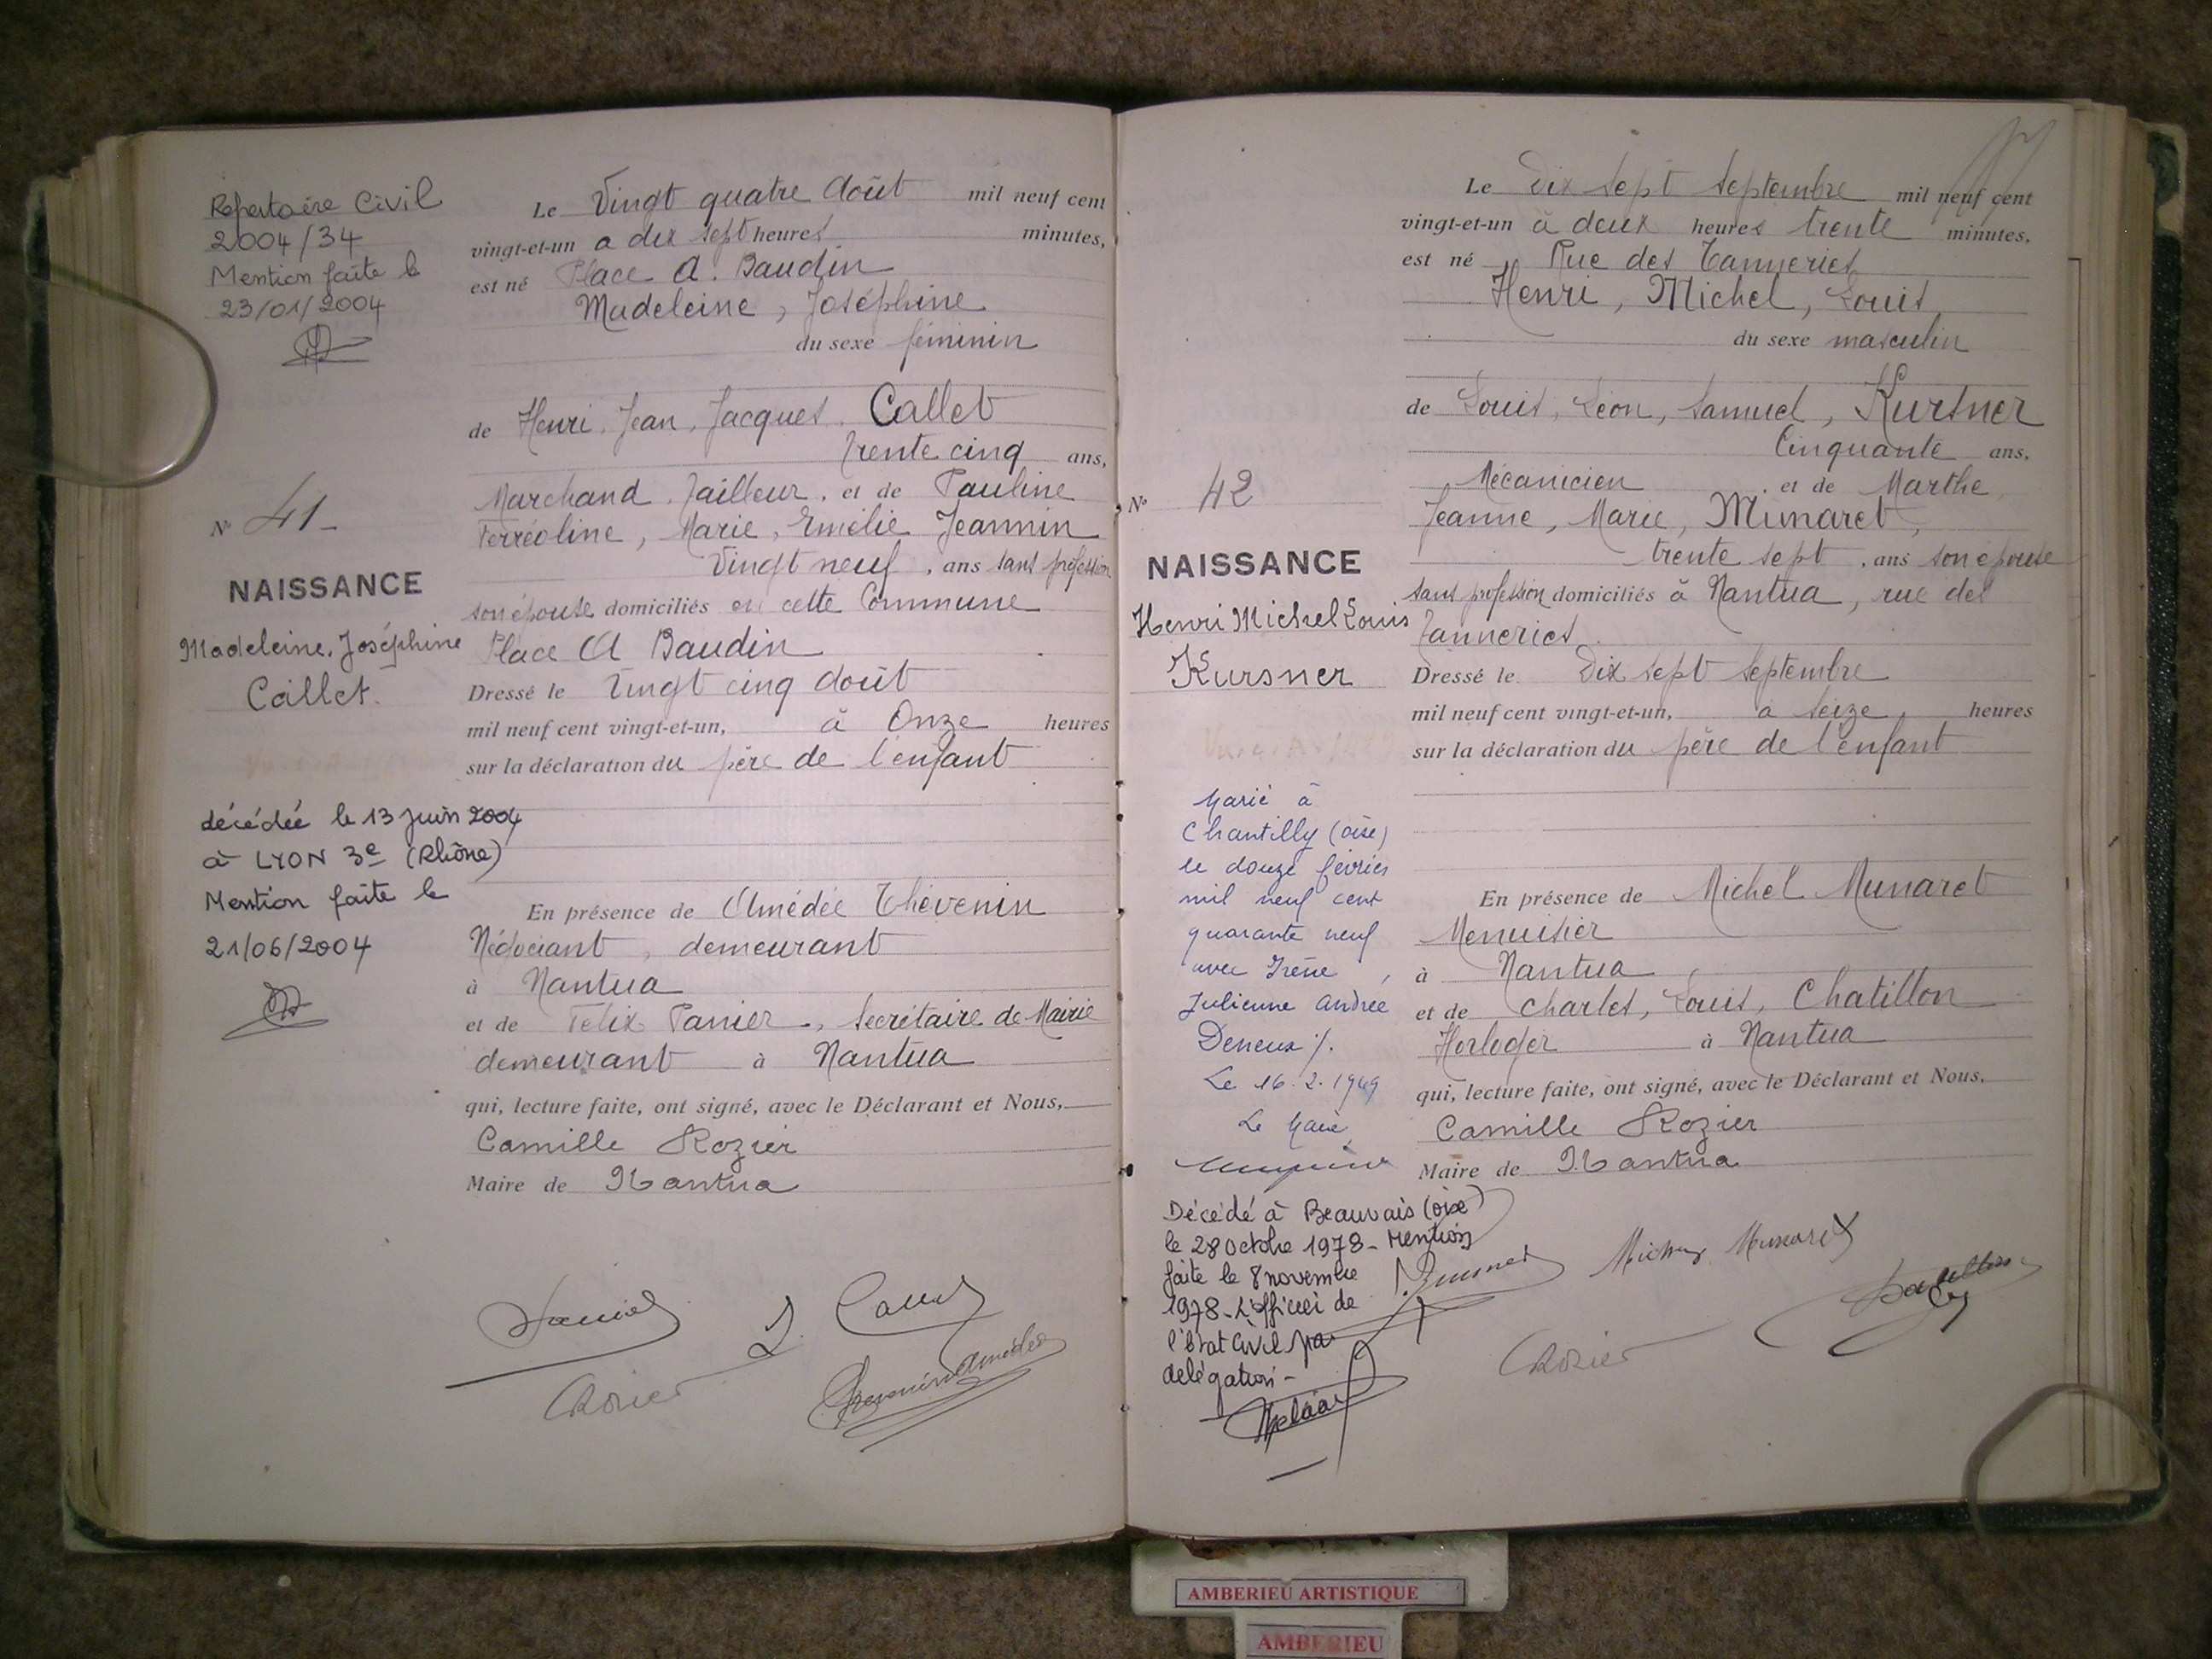 Répertoire Civil
2004/34
Mention faite le
23/01/2004
Nº 41
NAISSANCE
Madeleine, Joséphine
Callet.
décédée le 13 juin 2004
à LYON 3e (Rhône)
Mention faite le
21/06/2004
Le Vingt quatre Août mil neuf cent
vingt-et-un a dix sept heures minutes,
est né Place A. Baudin
Madeleine, Joséphine
du sexe féminin
de Henri, Jean, Jacques, Callet
trente cinq ans,
Marchand Tailleur, et de Pauline
Ferréoline, Marie, Emélie Jeannin
Vingt neuf, ans sans profession
son épouse domiciliés en cette Commune
Place A Baudin
Dressé le Vingt cinq Août
mil neuf cent vingt-et-un, à Onze heures
sur la déclaration du père de l'enfant
En présence de Amédée Thévenin
Négociant, demeurant
à Nantua
et de Félix Panier, Secrétaire de Mairie
demeurant à Nantua
qui, lecture faite, ont signé, avec le Déclarant et Nous,
Camille Rozier
Maire de Nantua
Thévenin Amédée
CRozier
Nº 42
NAISSANCE
Henri Michel Louis
Kursner
Marié à
Chantilly (oise)
le douze février
mil neuf cent
quarante neuf
avec Irène,
Julienne Andrée
Deneux ./.
Le 16.2.1949
Le Maire
Décédé à Beauvais (oise)
le 28 Octobre 1978 - Mention
faite le 8 novembre
1978 - L'Officier de
l'Etat Civil par
délégation -
Le Dix sept Septembre mil neuf cent
vingt-et-un à deux heures trente minutes,
est né Rue des Tanneries
Henri, Michel, Louis
du sexe masculin
de Louis, Léon, Samuel, Kursner
Cinquante ans,
Mécanicien et de Marthe,
Jeanne, Marie, Munaret,
trente sept, ans son épouse
sans profession domiciliés à Nantua, rue des
Tanneries.
Dressé le Dix sept Septembre
mil neuf cent vingt-et-un, a seize heures
sur la déclaration du père de l'enfant
En présence de Michel Munaret
Menuisier
à Nantua,
et de Charles, Louis, Chatillon
Horloger à Nantua
qui, lecture faite, ont signé, avec le Déclarant et Nous,
Camille Rozier
Maire de Nantua
Michel Munaret
CRozier
AMBERIEU ARTISTIQUE
AMBERIEU